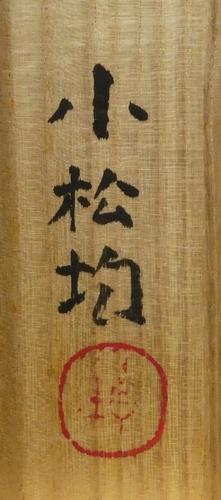 小松均